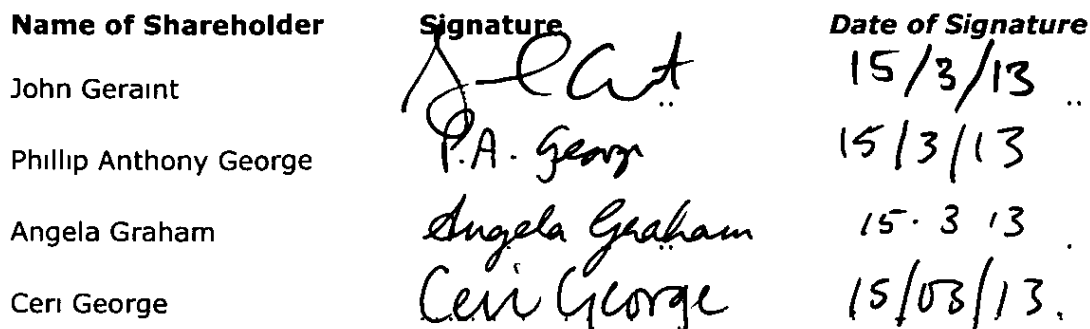 Name of Shareholder Signature Date of Signature
John Geraint 15/3/13
Phillip Anthony George P.A. George 15/3/13
Angela Graham Angela Graham 15.3 13
Ceri George Ceri George 15/03/13.